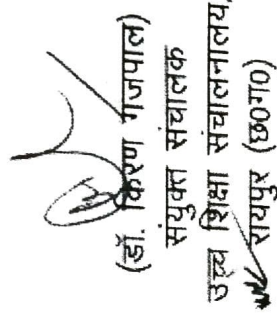 (डॉ. किरण गजपाल)
संयुक्त संचालक
उच्च शिक्षा संचालनालय,
रायपुर (छ०ग०)